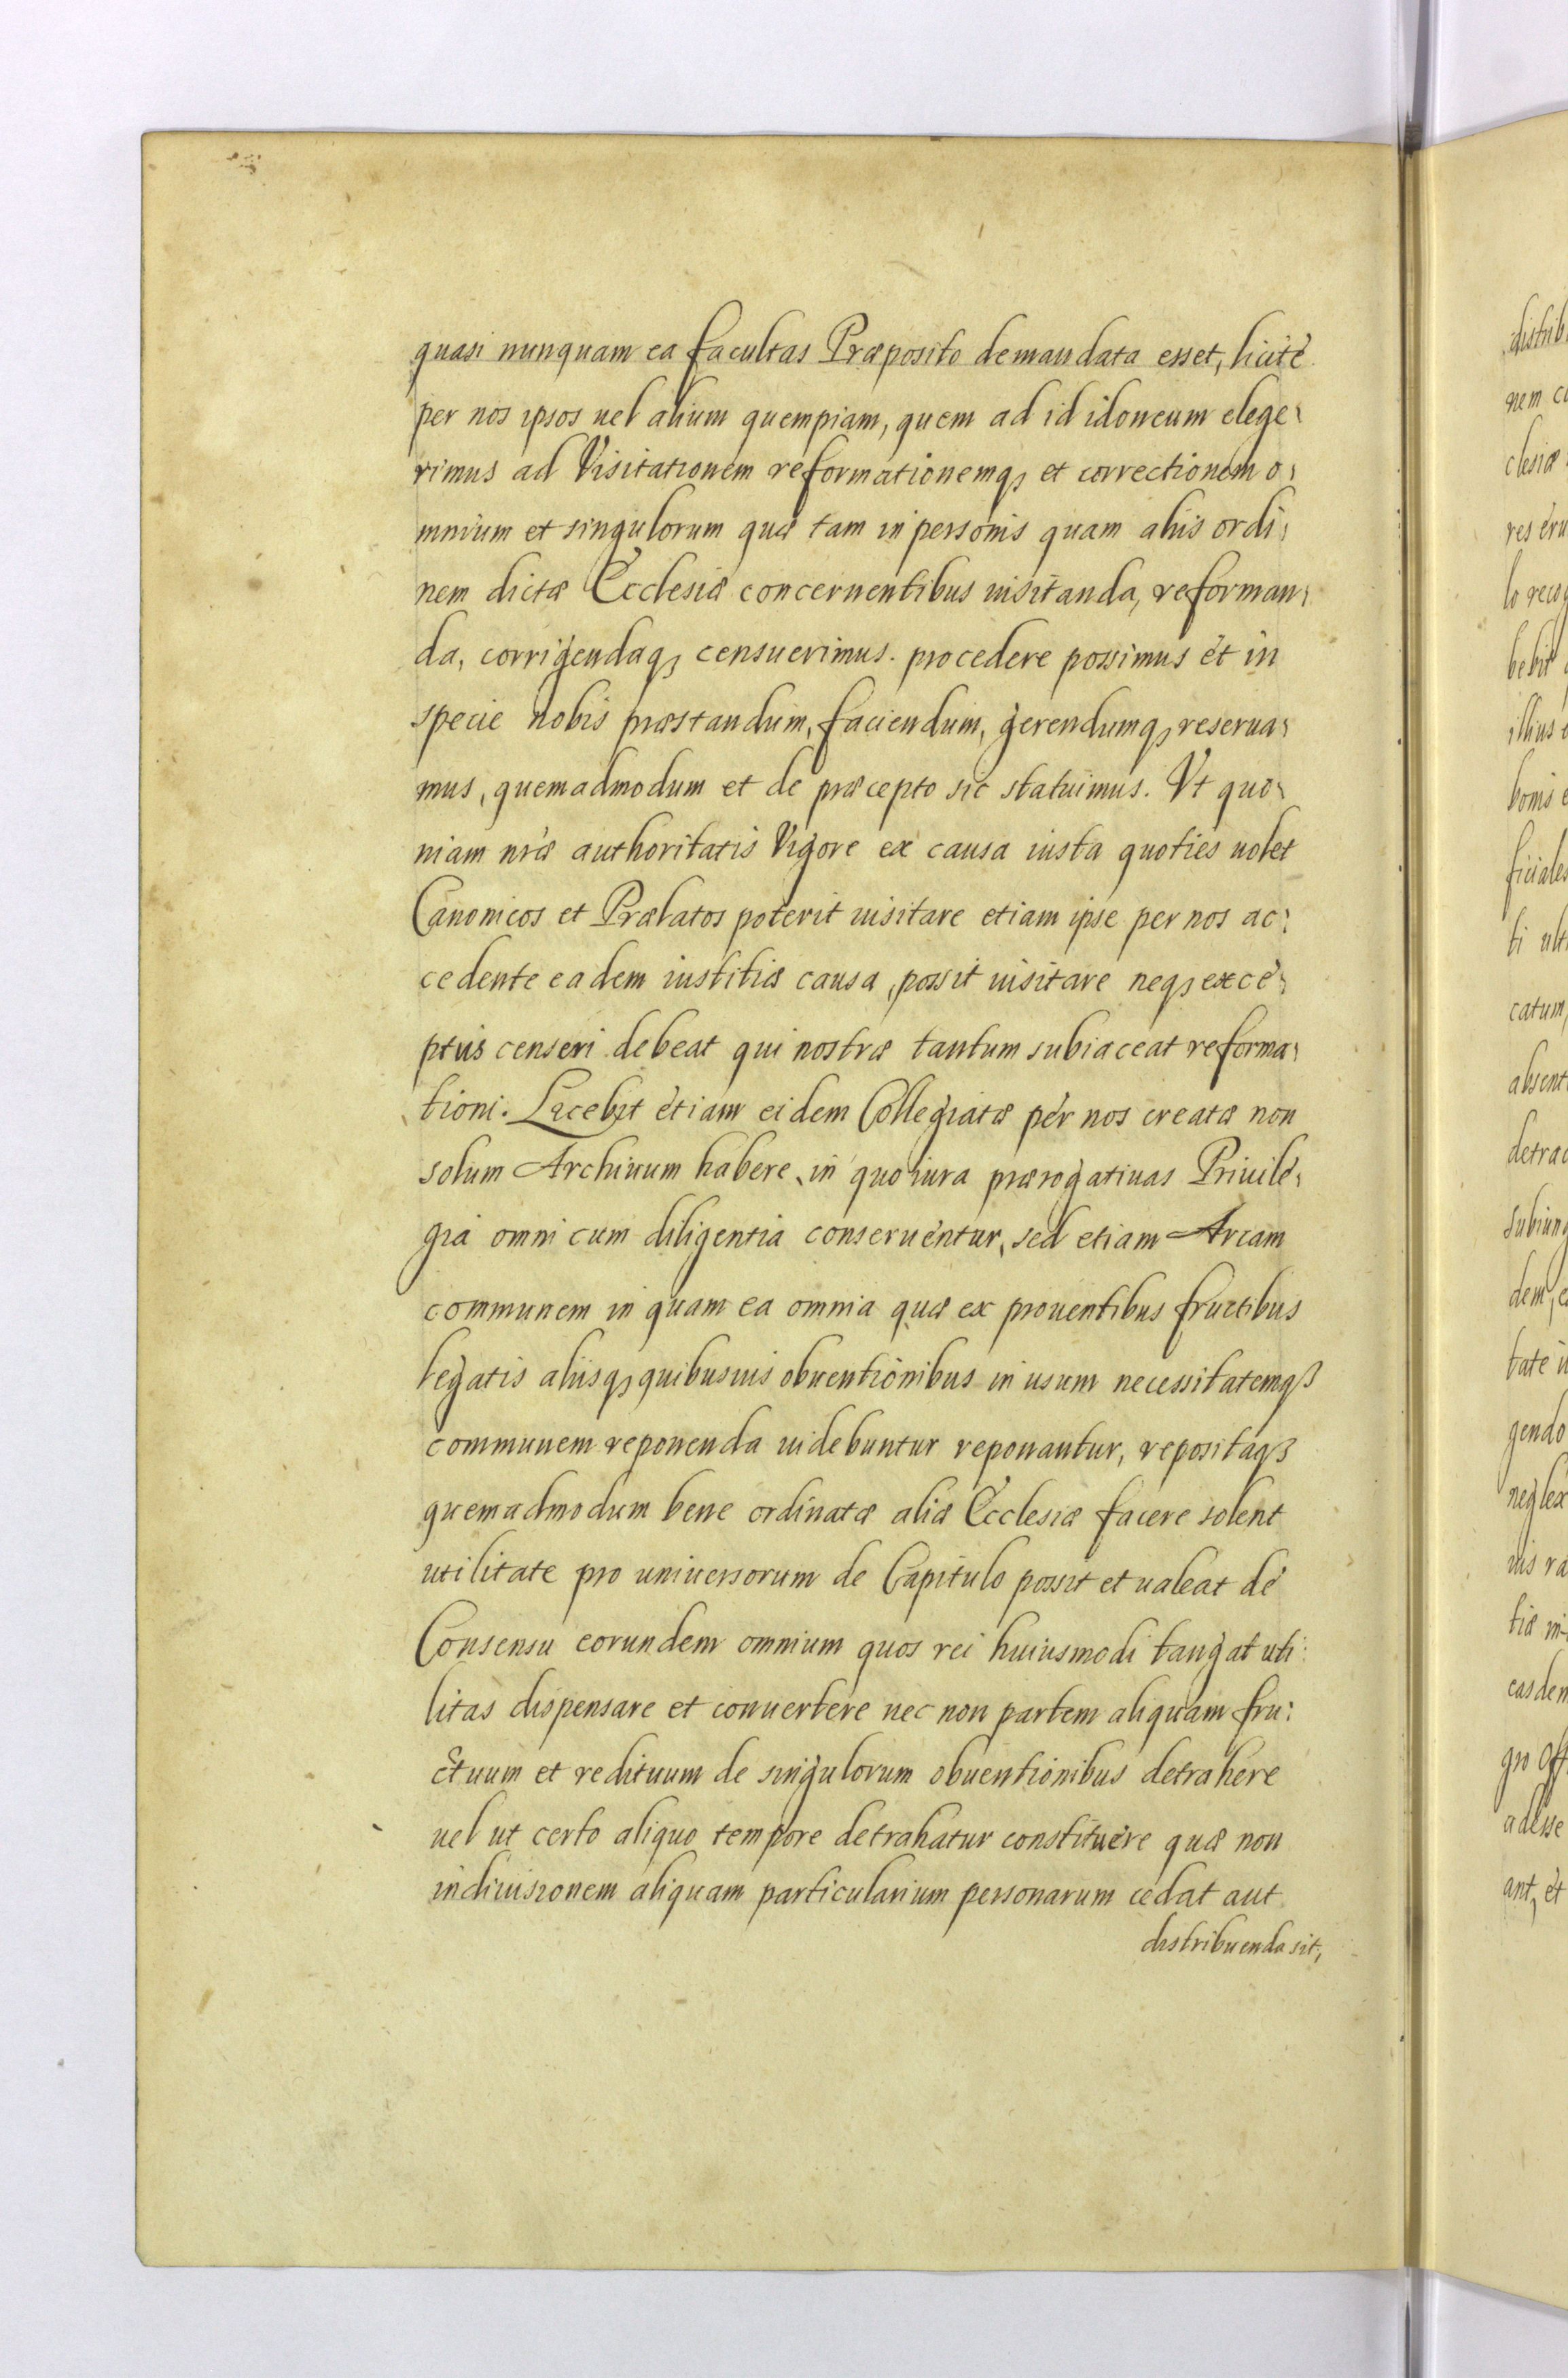 quasi nunquam ea facultas Præposito demandata esset, licitè
per nos ipsos uel alium quempiam, quem ad id idoneum elege:
rimus ad Visitationem reformationemq₃ et correctionem o:
mnium et singulorum quæ tam in personis quam aliis ordi:
nem dictæ Ecclesiæ concernentibus uisitanda, reforman:
da, corrigendaq₃ censuerimus. procedere possimus èt in
specie nobis præstandum, faciendum, gerendumq₃ reserua:
mus, quemadmodum et de præcepto sic statuimus. Vt quo:
niam nr̃æ authoritatis Vigore ex causa iusta quoties uolet
Canonicos et Prælatos poterit uisitare etiam ipse per nos ac:
cedente eadem iustitiæ causa, possit uisitare neq₃ exce:
ptus censeri debeat qui nostræ tantum subiaceat reforma:
tioni. Licebit etiam eidem Collegiatæ per nos creatæ non
solum Archiuum habere, in quo iura prærogatiuas Priuile:
gia omni cum diligentia conseruentur, sed etiam Arcam
communem in quam ea omnia quæ ex prouentibus fructibus
legatis aliisq₃ quibusuis obuentionibus in usum necessitatemq₃
communem reponenda uidebuntur reponantur, repositaq₃
quemadmodum bene ordinatæ aliæ Ecclesiæ facere solent
utilitate pro uniuersorum de Capitulo possit et ualeat de
Consensu eorundem omnium quos rei huiusmodi tangat uti:
litas dispensare et conuertere nec non partem aliquam fru:
ctuum et redituum de singulorum obuentionibus detrahere
uel ut certo aliquo tempore detrahatur constituere quæ non
in diuisionem aliquam particularium personarum cedat aut
distribuenda sit,